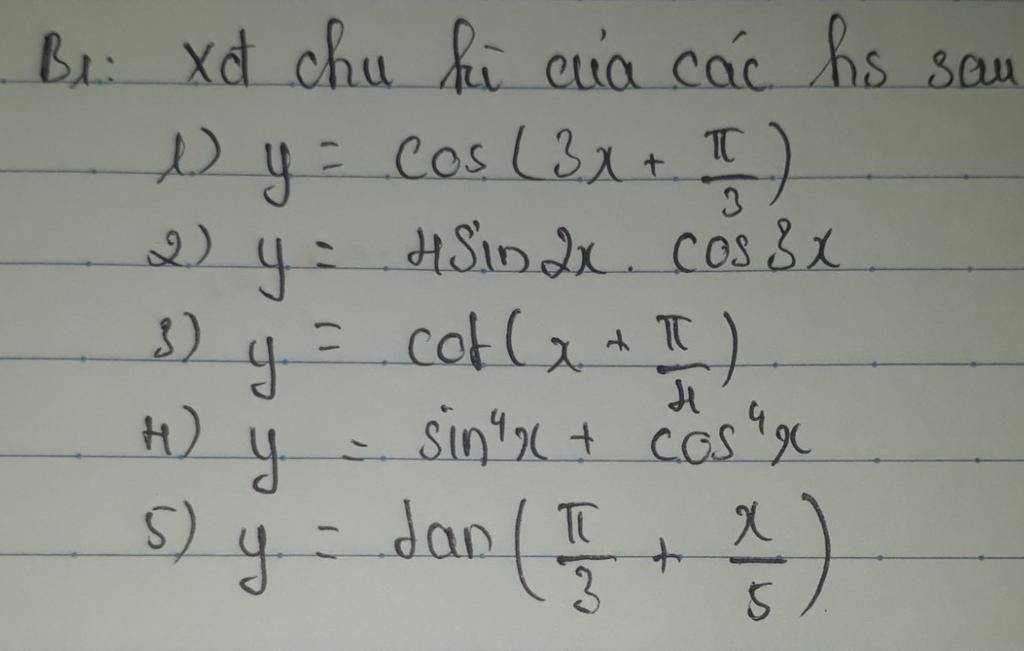 B1: xđ chu kì của các hs sau
1) y = cos(3x + π/3)
2) y = 4sin2x. cos3x
3) y = cot(x + π/4)
4) y = sin⁴x + cos⁴x
5) y = tan(π/3 + x/5)